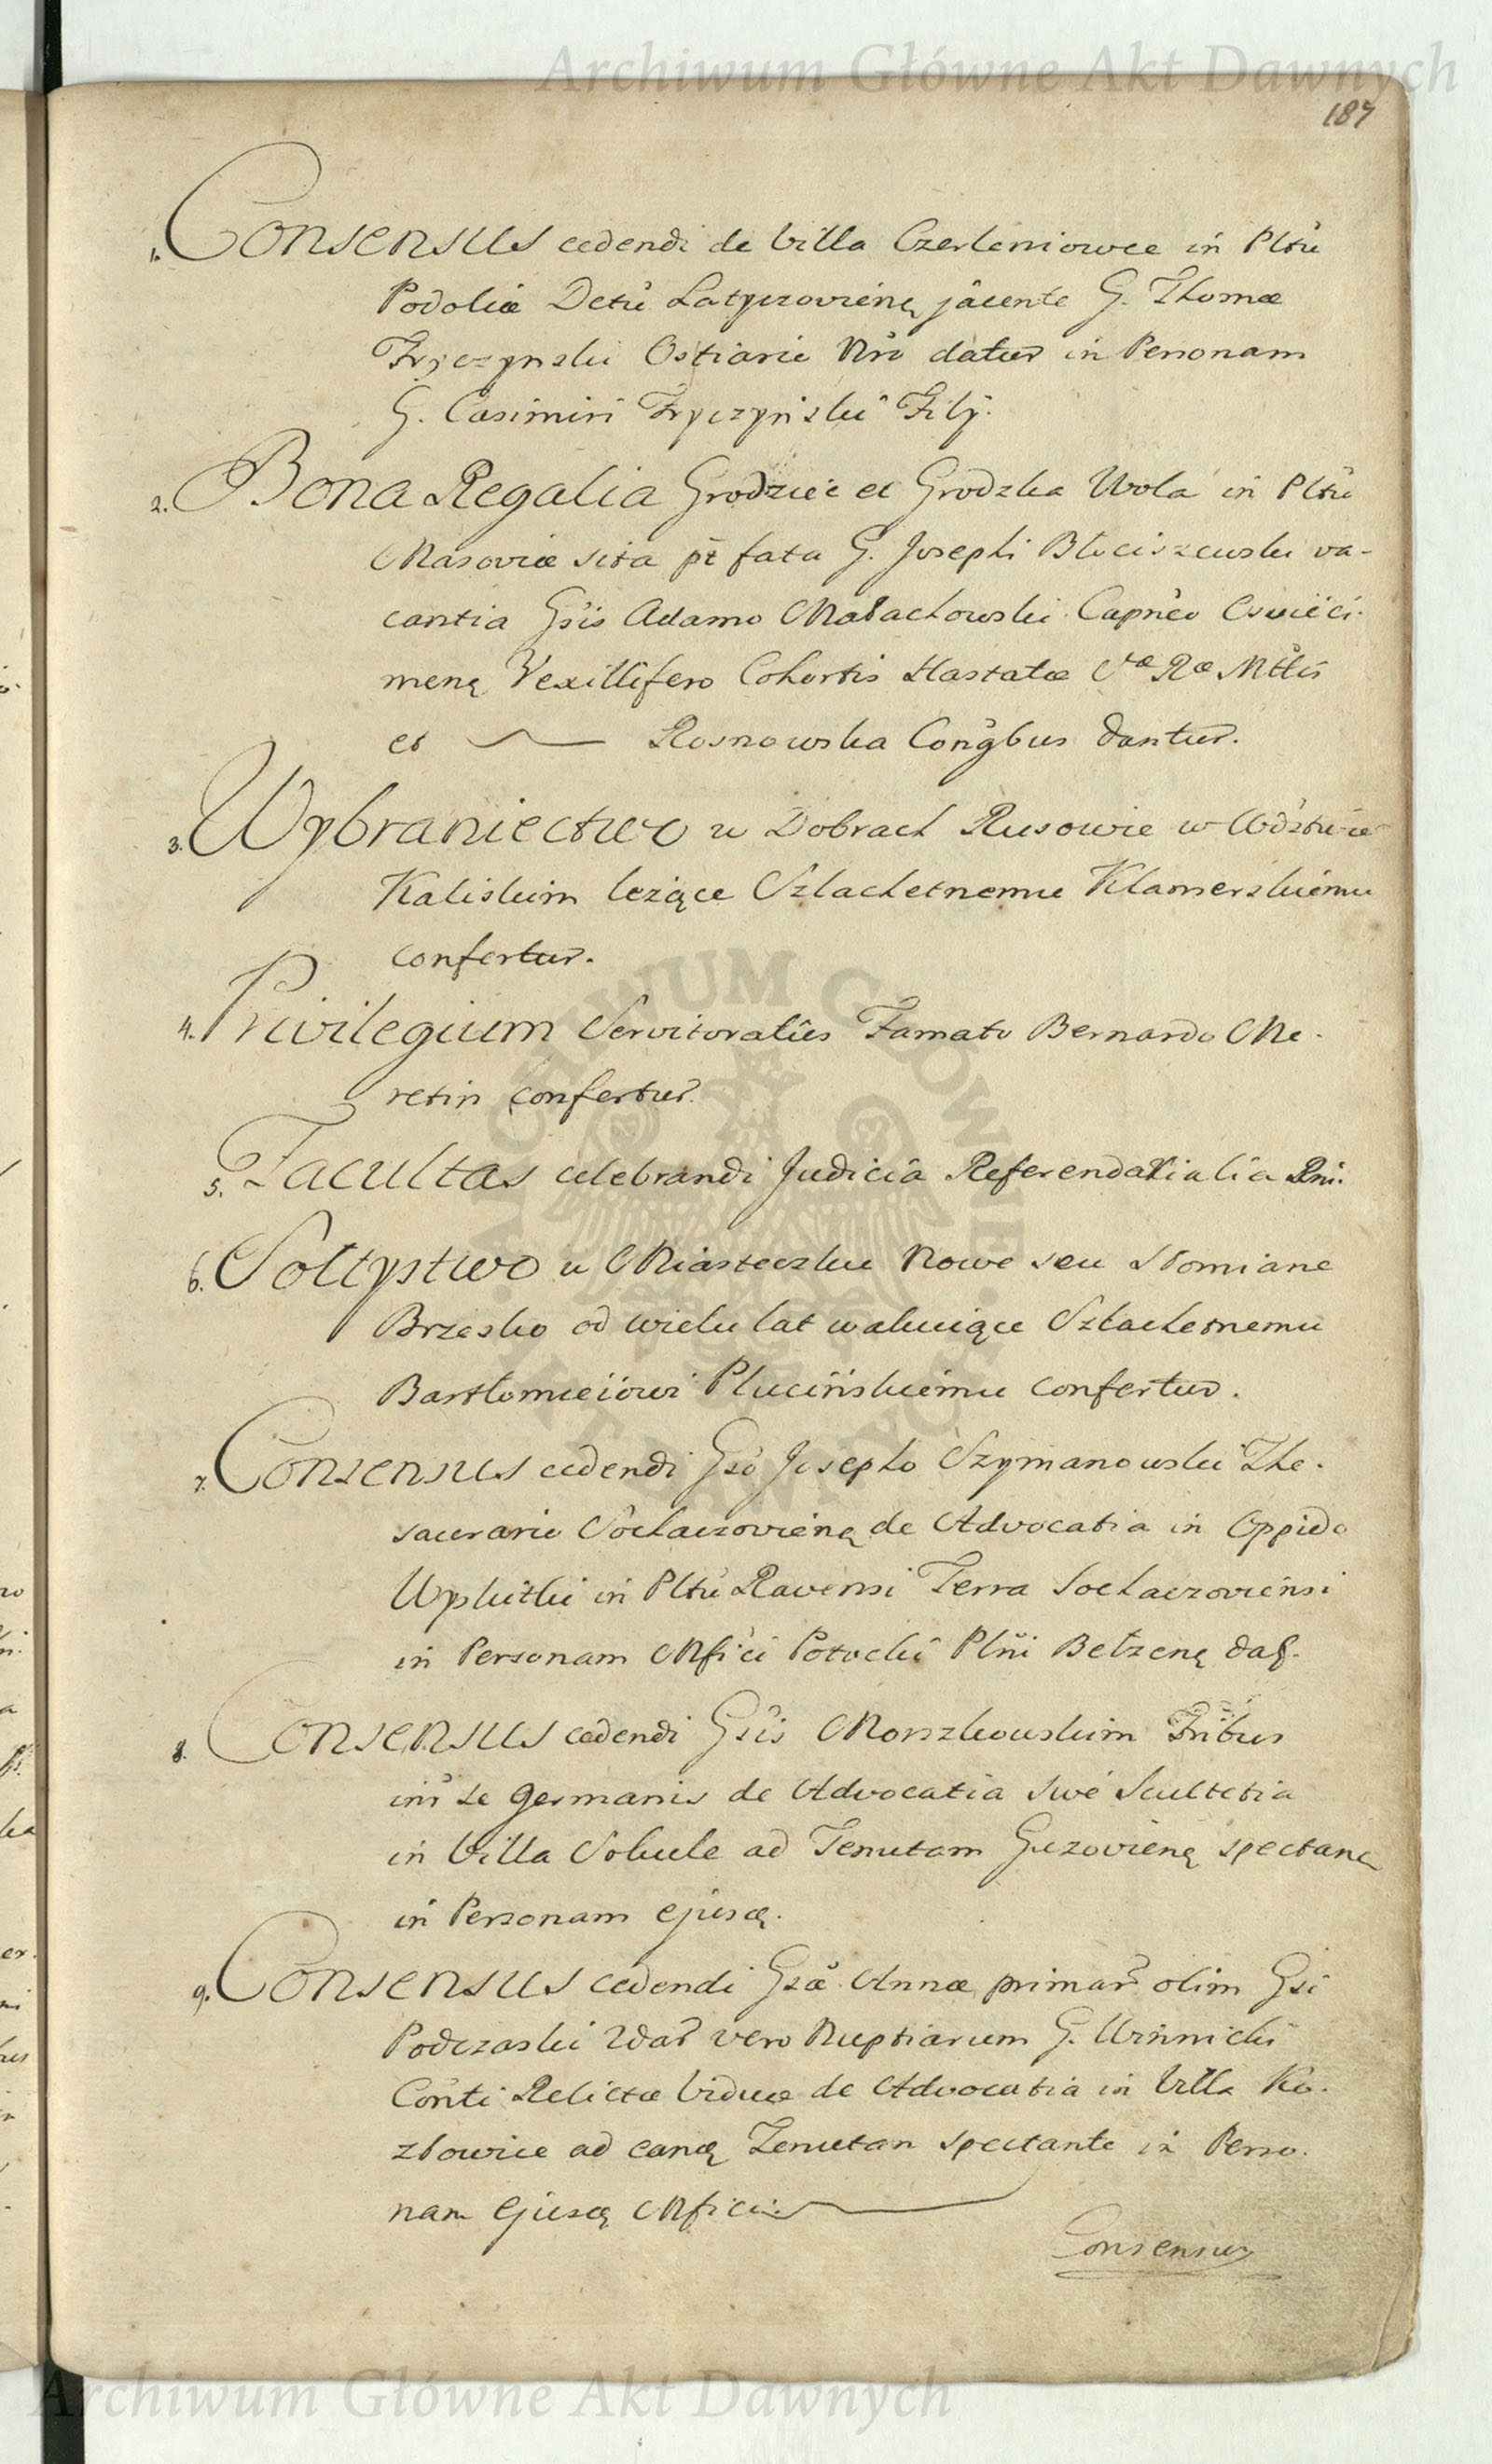 Archiwum Główne Akt Dawnych
187
1. Consensus cedendi de Villa Czerleniowce in Pltũ
Podoliæ Dctũ Latyczoviensi jacente G. Thomæ
Fryczynski Ostiario Nrõ datur in Personam
G. Casimiri Fryczynski Filij.
2. Bona Regalia Grodziec et Grodzka Wola in Pltũ
Masoviæ sita pt fata G. Josephi Błociszewski va-
cantia Gsis Adamo Małachowski Capneo Oswieci-
menę Vexillifero Cohortis Hastatæ Ctæ Ræ Mttis
et Rosnowska Congbus dantur.
3. Wybraniectwo w Dobrach Rusowie w Wdztwie
Kaliskim leżące Szlachetnemu Klamerskiemu
confertur.
4. Privilegium Servitoratûs Famato Bernardo Me-
retin confertur.
5. Facultas celebrandi Judicia Referendarialia Rni.
6. Sołtystwo w Miasteczku Nowe seu Słomiane
Brzesko od wielu lat wakuiące Szlachetnemu
Bartłomieiowi Plucińskiemu confertur.
7. Consensus cedendi Gso Josepho Szymanowski The-
saurario Sochaczovienę de Advocatia in Oppido
Wyskitki in Pltũ Ravensi Terra Sochaczoviensi
in Personam Mfici Potocki Plni Bełzenę daŧ.
8. Consensus cedendi Gsis Morszkowskim Fribus
inr se Germanis de Advocatia sive Scultetia
in Villa Sokule ad Tenutam Guzovienę spectanę
in Personam ejusdę.
9. Consensus cedendi Gsæ Annæ primar olim Gsi
Podczaski 2dar vero Nuptiarum G. Winnicki
Conti Relictæ Viduæ de Advocatia in Villa Ko-
złowice ad eandę Tenutam spectante in Perso-
nam Ejusdę Mfici.
Consensus
Archiwum Główne Akt Dawnych